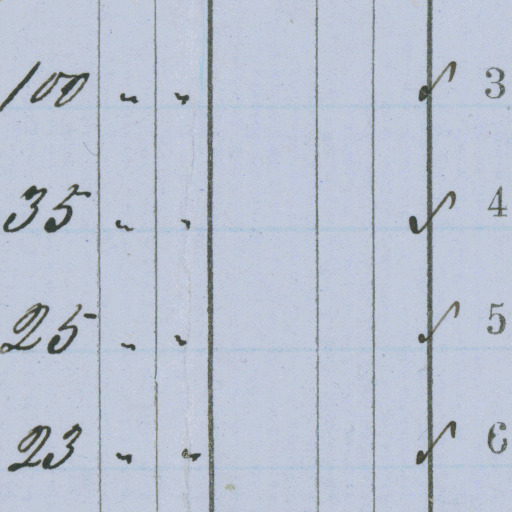 100 " " ✓ 3
35 " " ✓ 4
25 " " ✓ 5
23 " " ✓ 6